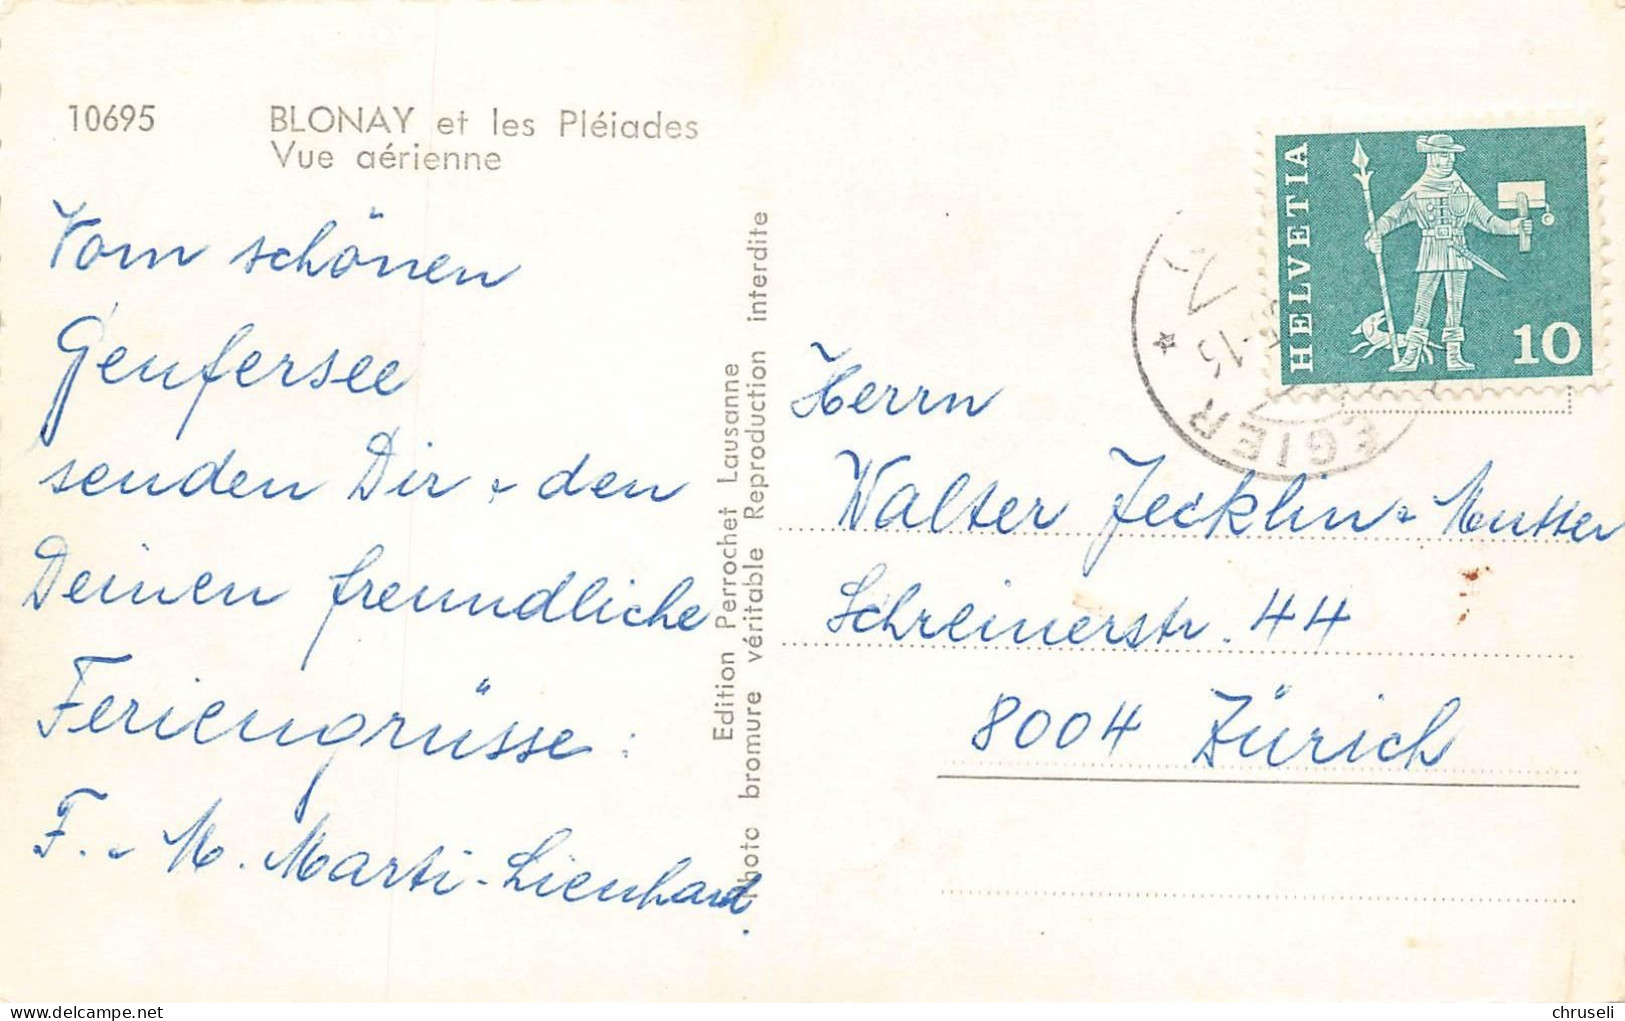 10695 BLONAY et les Pléiades
Vue aérienne
Vom schönen
Genfersee
senden Dir + den
Deinen freundliche
Feriengrüsse:
F. + M. Marti-Lienhard.
Edition Perrochet Lausanne
Photo bromure véritable Reproduction interdite
HELVETIA
10
EGIER
Herrn
Walter Jecklin-
Schreinerstr. 44
8004 Zürich
chruseli